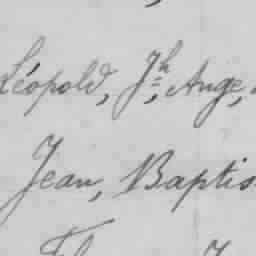 Léopold, Jh Ange,
Jean, Baptis